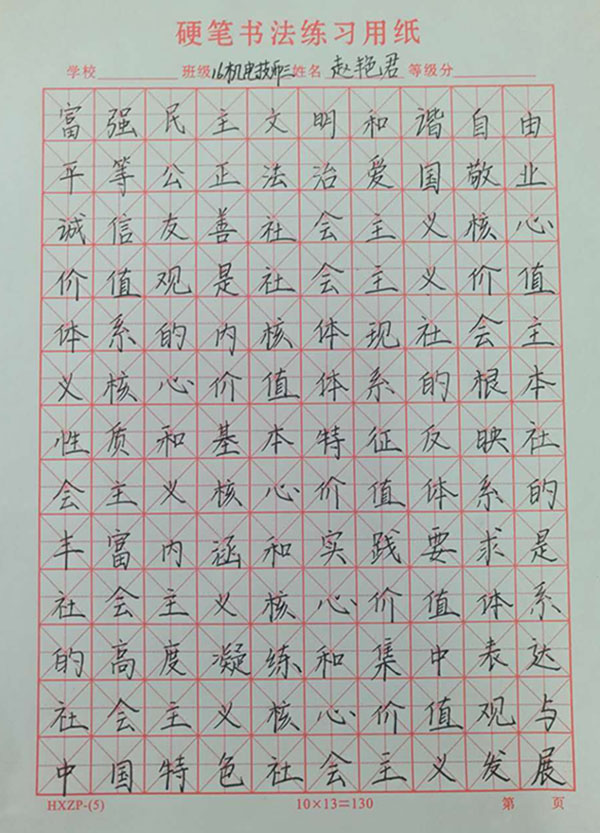 硬笔书法练习用纸
学校 班级 16机电技师三 姓名 赵艳君 等级分
富强民主文明和谐自由
平等公正法治爱国敬业
诚信友善社会主义核心
价值观是社会主义价值
体系的内核体现社会主
义核心价值体系的根本
性质和基本特征反映社
会主义核心价值体系的
丰富内涵和实践要求是
社会主义核心价值体系
的高度凝练和集中表达
社会主义核心价值观与
中国特色社会主义发展
HXZP-(5) 10×13=130 第 页